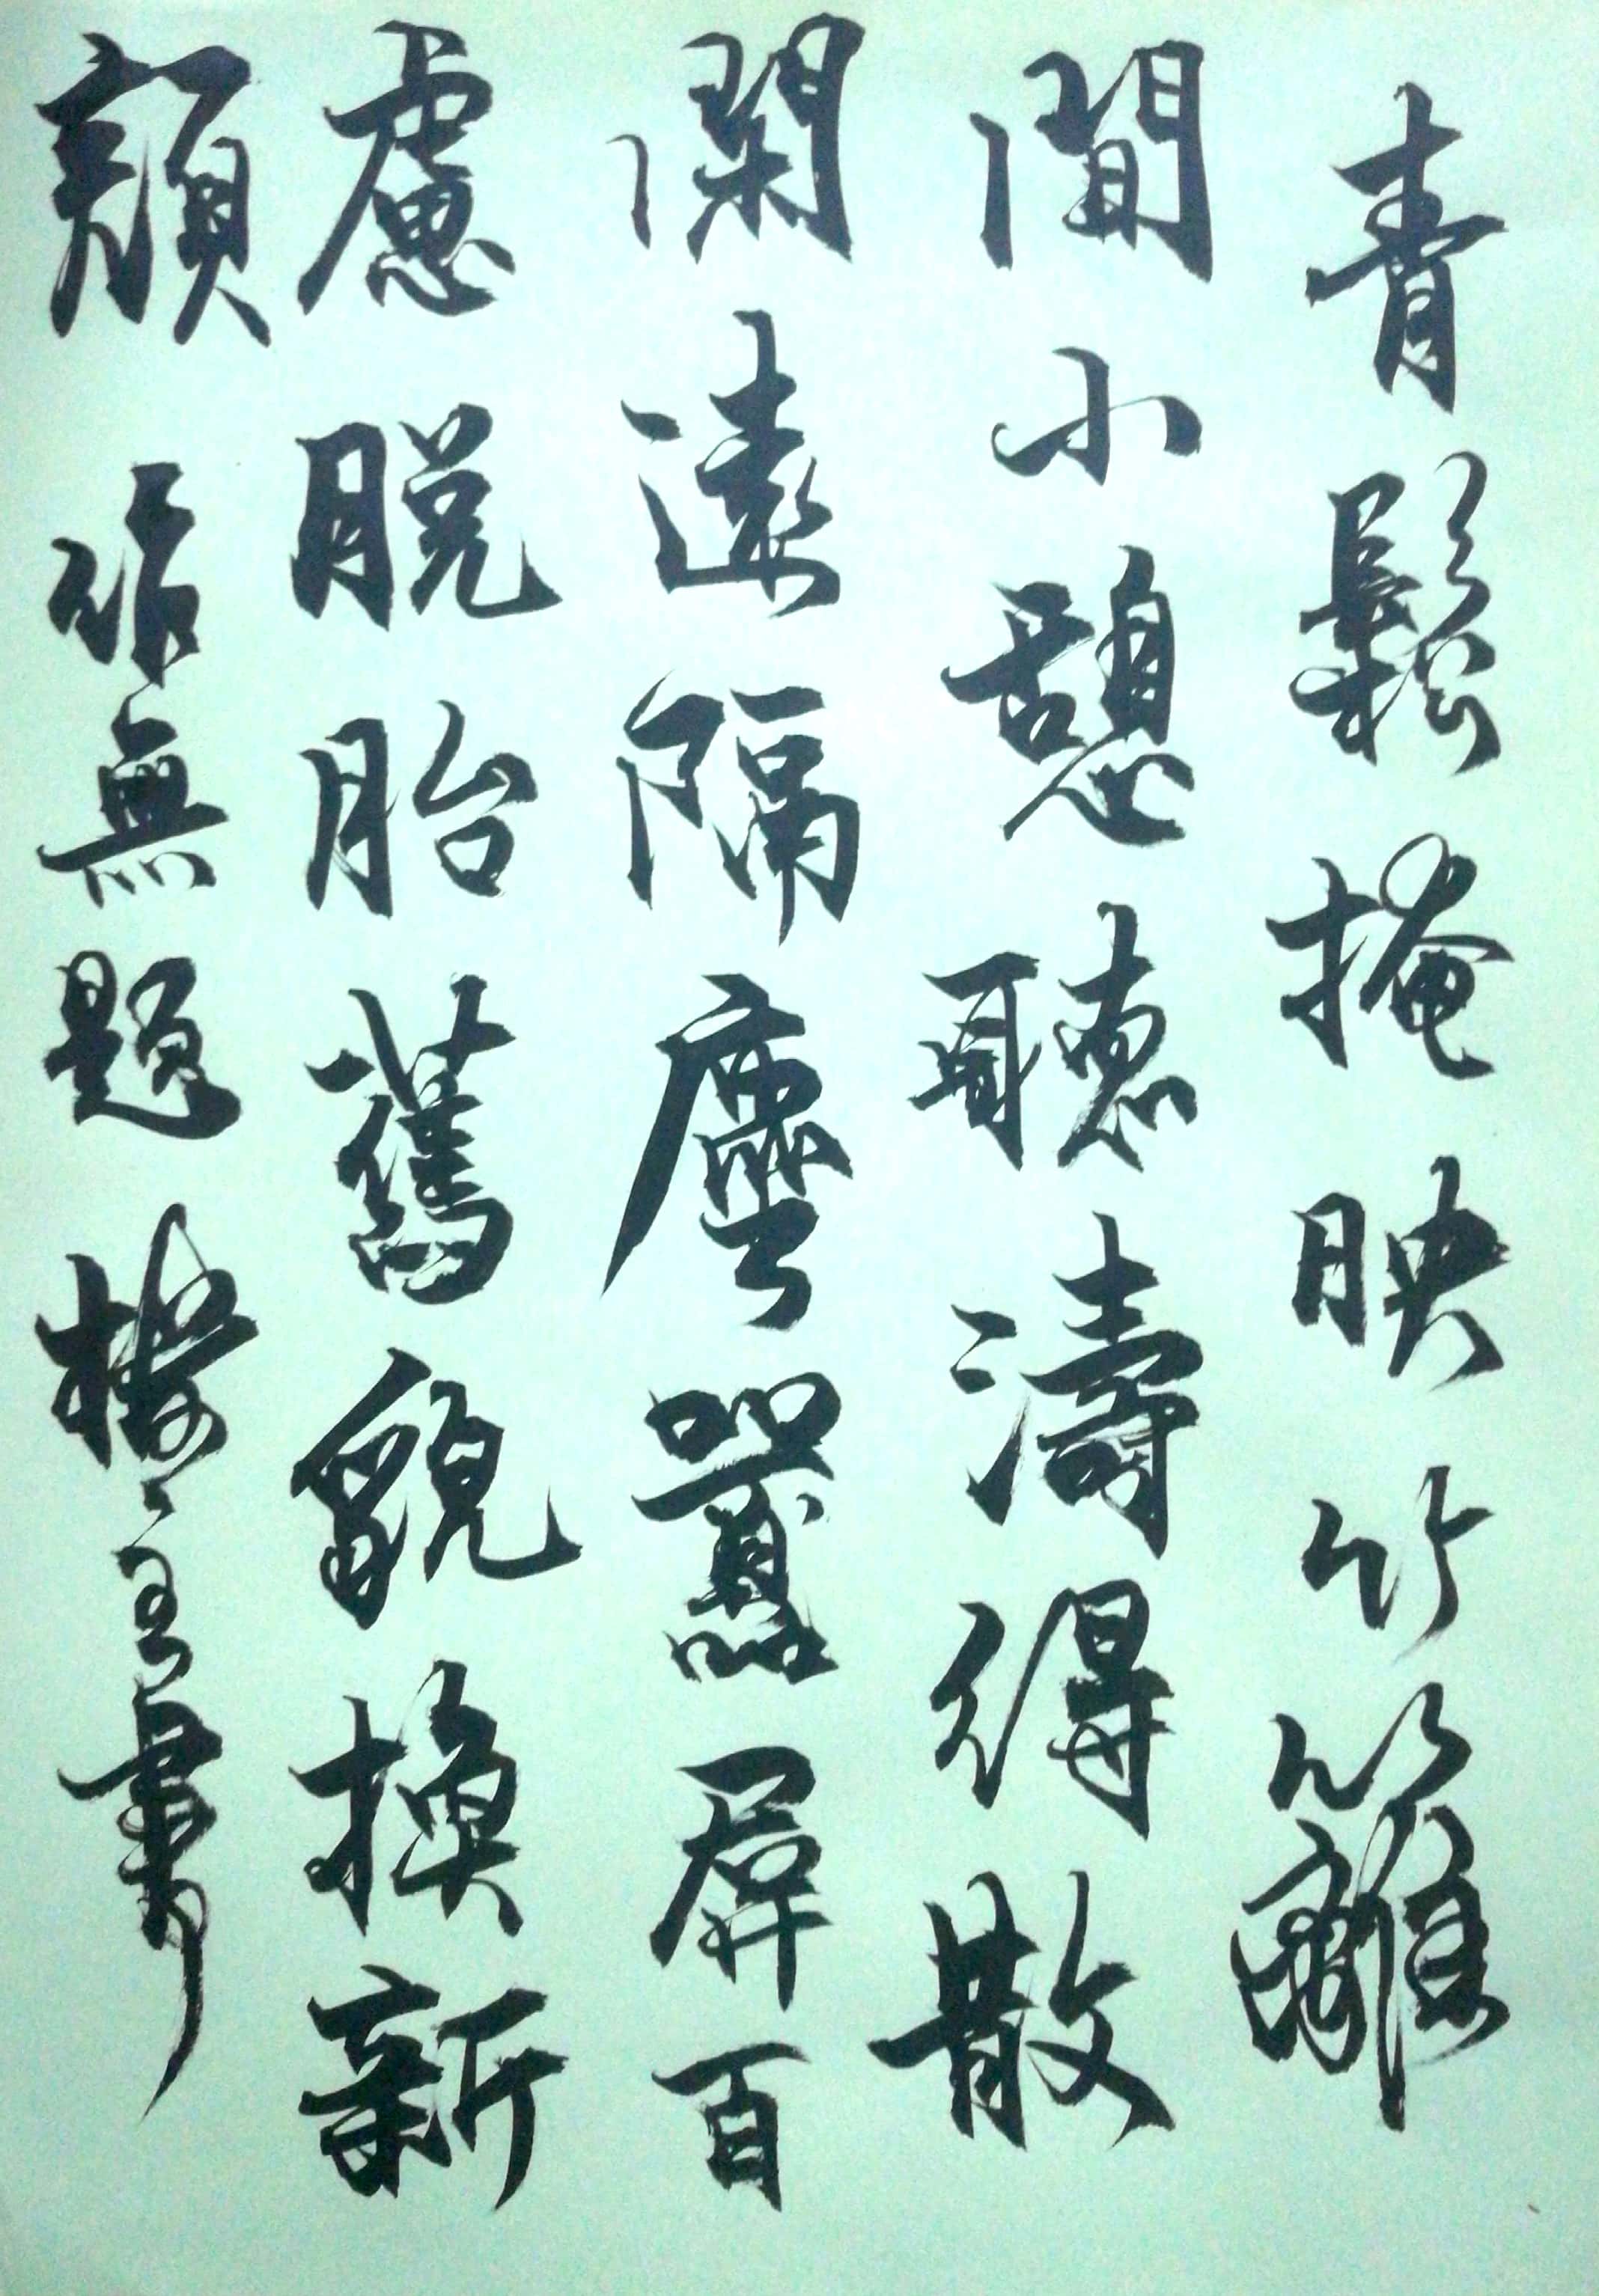 青鬆掩映竹籬
間小憩聽濤得散
閑遠隔塵囂屏百
慮脫胎舊貌換新
顏 作無題 主書